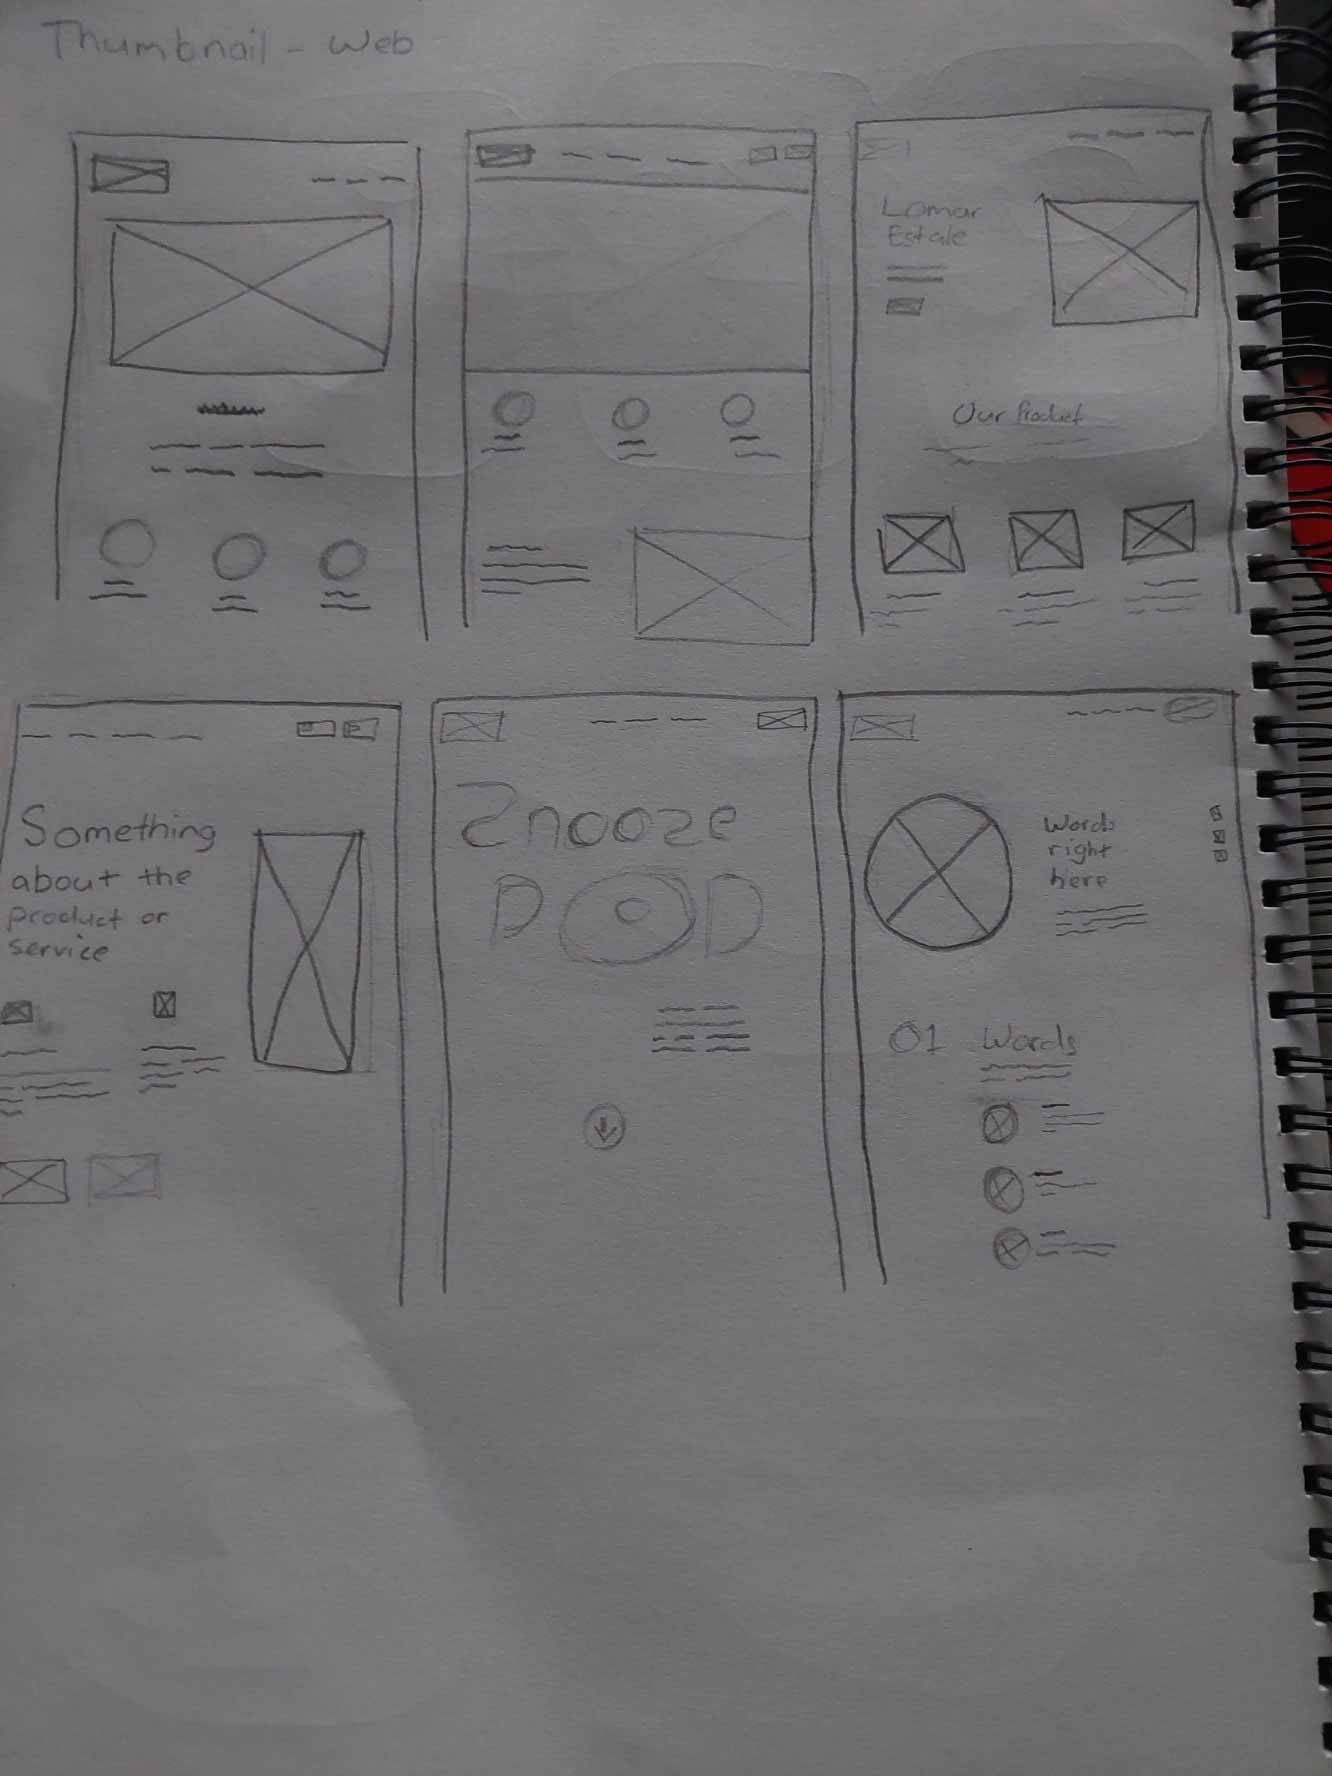 Thumbnail - Web
Lamar
Estate
Our Product
Something
about the
product or
service
Znooze
POD
Words
right
here
01 Words